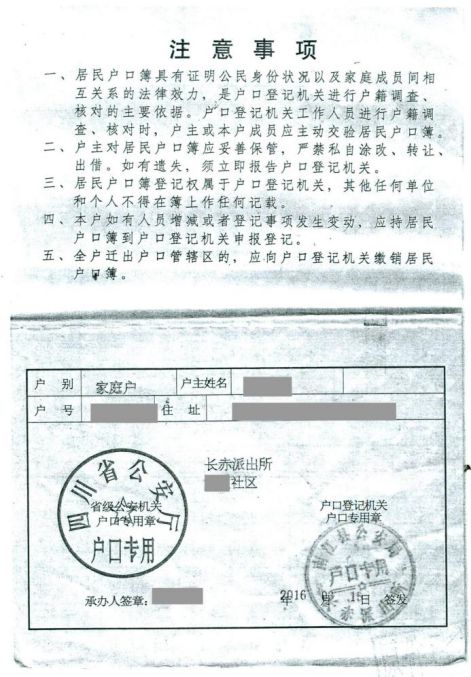 注意事项
一、居民户口簿具有证明公民身份状况以及家庭成员间相
互关系的法律效力，是户口登记机关进行户籍调查、
核对的主要依据。户口登记机关工作人员进行户籍调
查、核对时，户主或本户成员应主动交验居民户口簿。
二、户主对居民户口簿应妥善保管，严禁私自涂改、转让、
出借。如有遗失，须立即报告户口登记机关。
三、居民户口簿登记权属于户口登记机关，其他任何单位
和个人不得在簿上作任何记载。
四、本户如有人员增减或者登记事项发生变动，应持居民
户口簿到户口登记机关申报登记。
五、全户迁出户口管辖区的，应向户口登记机关缴销居民
户口簿。
户 别 家庭户 户主姓名
户 号 住 址
长赤派出所
社区
四川省公安厅
省级公安机关
户口专用章
户口专用
户口登记机关
户口专用章
南江县公安局
户口专用
长赤派出所
承办人签章：
2016年 日 签发